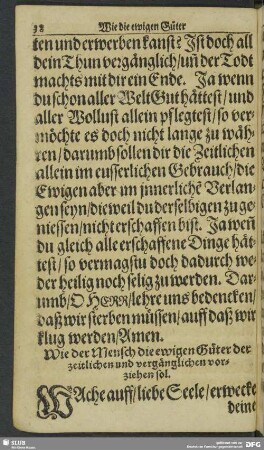 38 Wie die ewigen Güter
ten und erwerben kanst? Ist doch all
dein Thun vergänglich/ uñ der Todt
machts mit dir ein Ende. Ja wenn
du schon aller Welt Gut hättest/ und
aller Wollust allein pflegtest/ so ver-
möchte es doch nicht lange zu wäh-
ren/ darumb sollen dir die Zeitlichen
allein im eusserlichen Gebrauch/ die
Ewigen aber im jnnerlichē Verlan-
gen seyn/ dieweil du derselbigen zu ge-
niessen/ nicht erschaffen bist. Ja weñ
du gleich alle erschaffene Dinge hät-
test/ so vermagstu doch dadurch we-
der heilig noch selig zu werden. Dar-
umb/ O HERR/ lehre uns bedencken/
daß wir sterben müssen/ auff daß wir
klug werden/ Amen.
Wie der Mensch die ewigen Güter der
zeitlichen und vergänglichen vor-
ziehen sol.
WAche auff/ liebe Seele/ erwecke
deine
SLUB
DFG